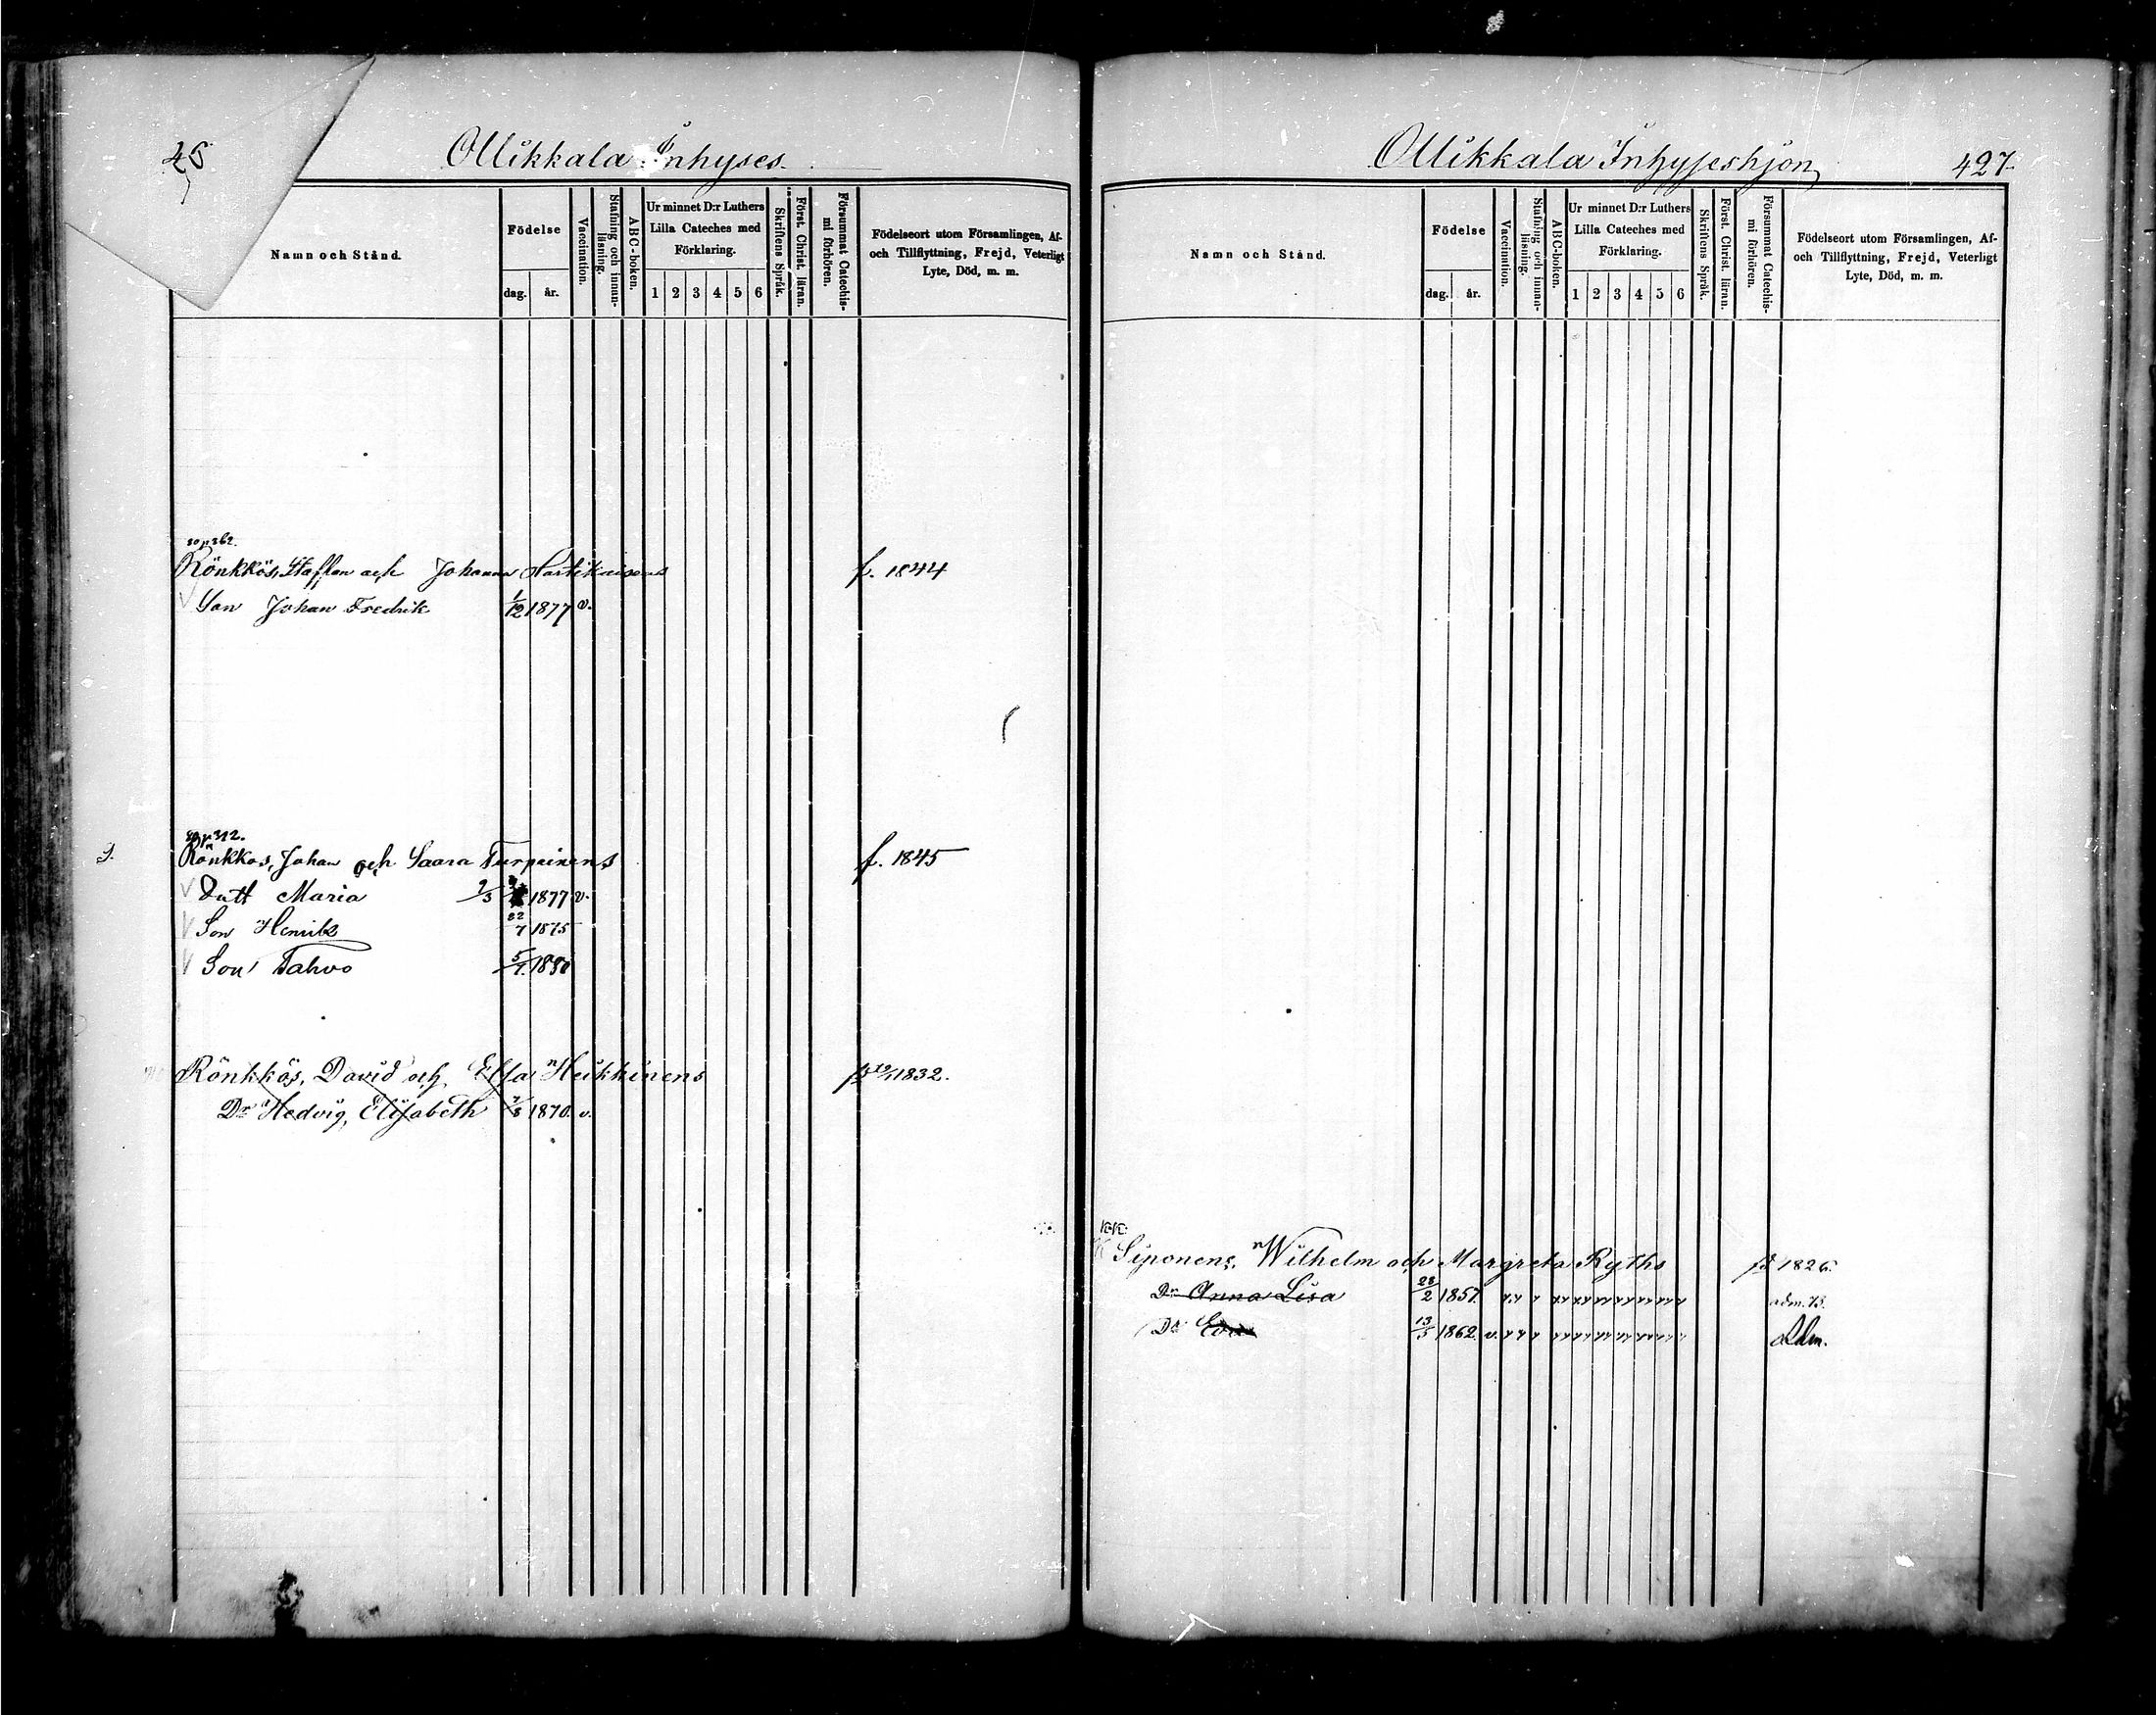 Ollikkala Inhyses.
Namn och Stånd.
Födelse
dag. år.
Vaccination.
Stafning och innan-
läsning.
ABC-boken.
Ur minnet D:r Luthers
Lilla Cateches med
Förklaring.
1 2 3 4 5 6
Skriftens Språk.
Först. Christ. läran.
Försummat Catechis-
mi förhören.
Födelseort utom Församlingen, Af-
och Tillflyttning, Frejd, Veterligt
Lyte, Död, m. m.
Rönkkös, Staffan och Johanna Hartikainens f. 1844
Son Johan Fredrik 1/12 1877 v.
Rönkkös, Johan och Saara Turpainens f. 1845
Dott Maria 2/3 1877 v.
Son Henrik 22/7 1875
Son Tahvo 5/4 1880
Rönkkös, David och Elsa Heikkinens 1832.
Dr Hedvig, Elisabeth 7/3 1870. v.
Ollikkala Inhyseshjon 427.
Namn och Stånd.
Födelse
dag. år.
Vaccination.
Stafning och innan-
läsning.
ABC-boken.
Ur minnet D:r Luthers
Lilla Cateches med
Förklaring.
1 2 3 4 5 6
Skriftens Språk.
Först. Christ. läran.
Försummat Catechis-
mi förhören.
Födelseort utom Församlingen, Af-
och Tillflyttning, Frejd, Veterligt
Lyte, Död, m. m.
Siponens, Wilhelm och Margreta Ryths 1826.
Dr Anna Lisa 28/2 1857. adm. 73.
Dr Eva 13/5 1862. v. Adm.